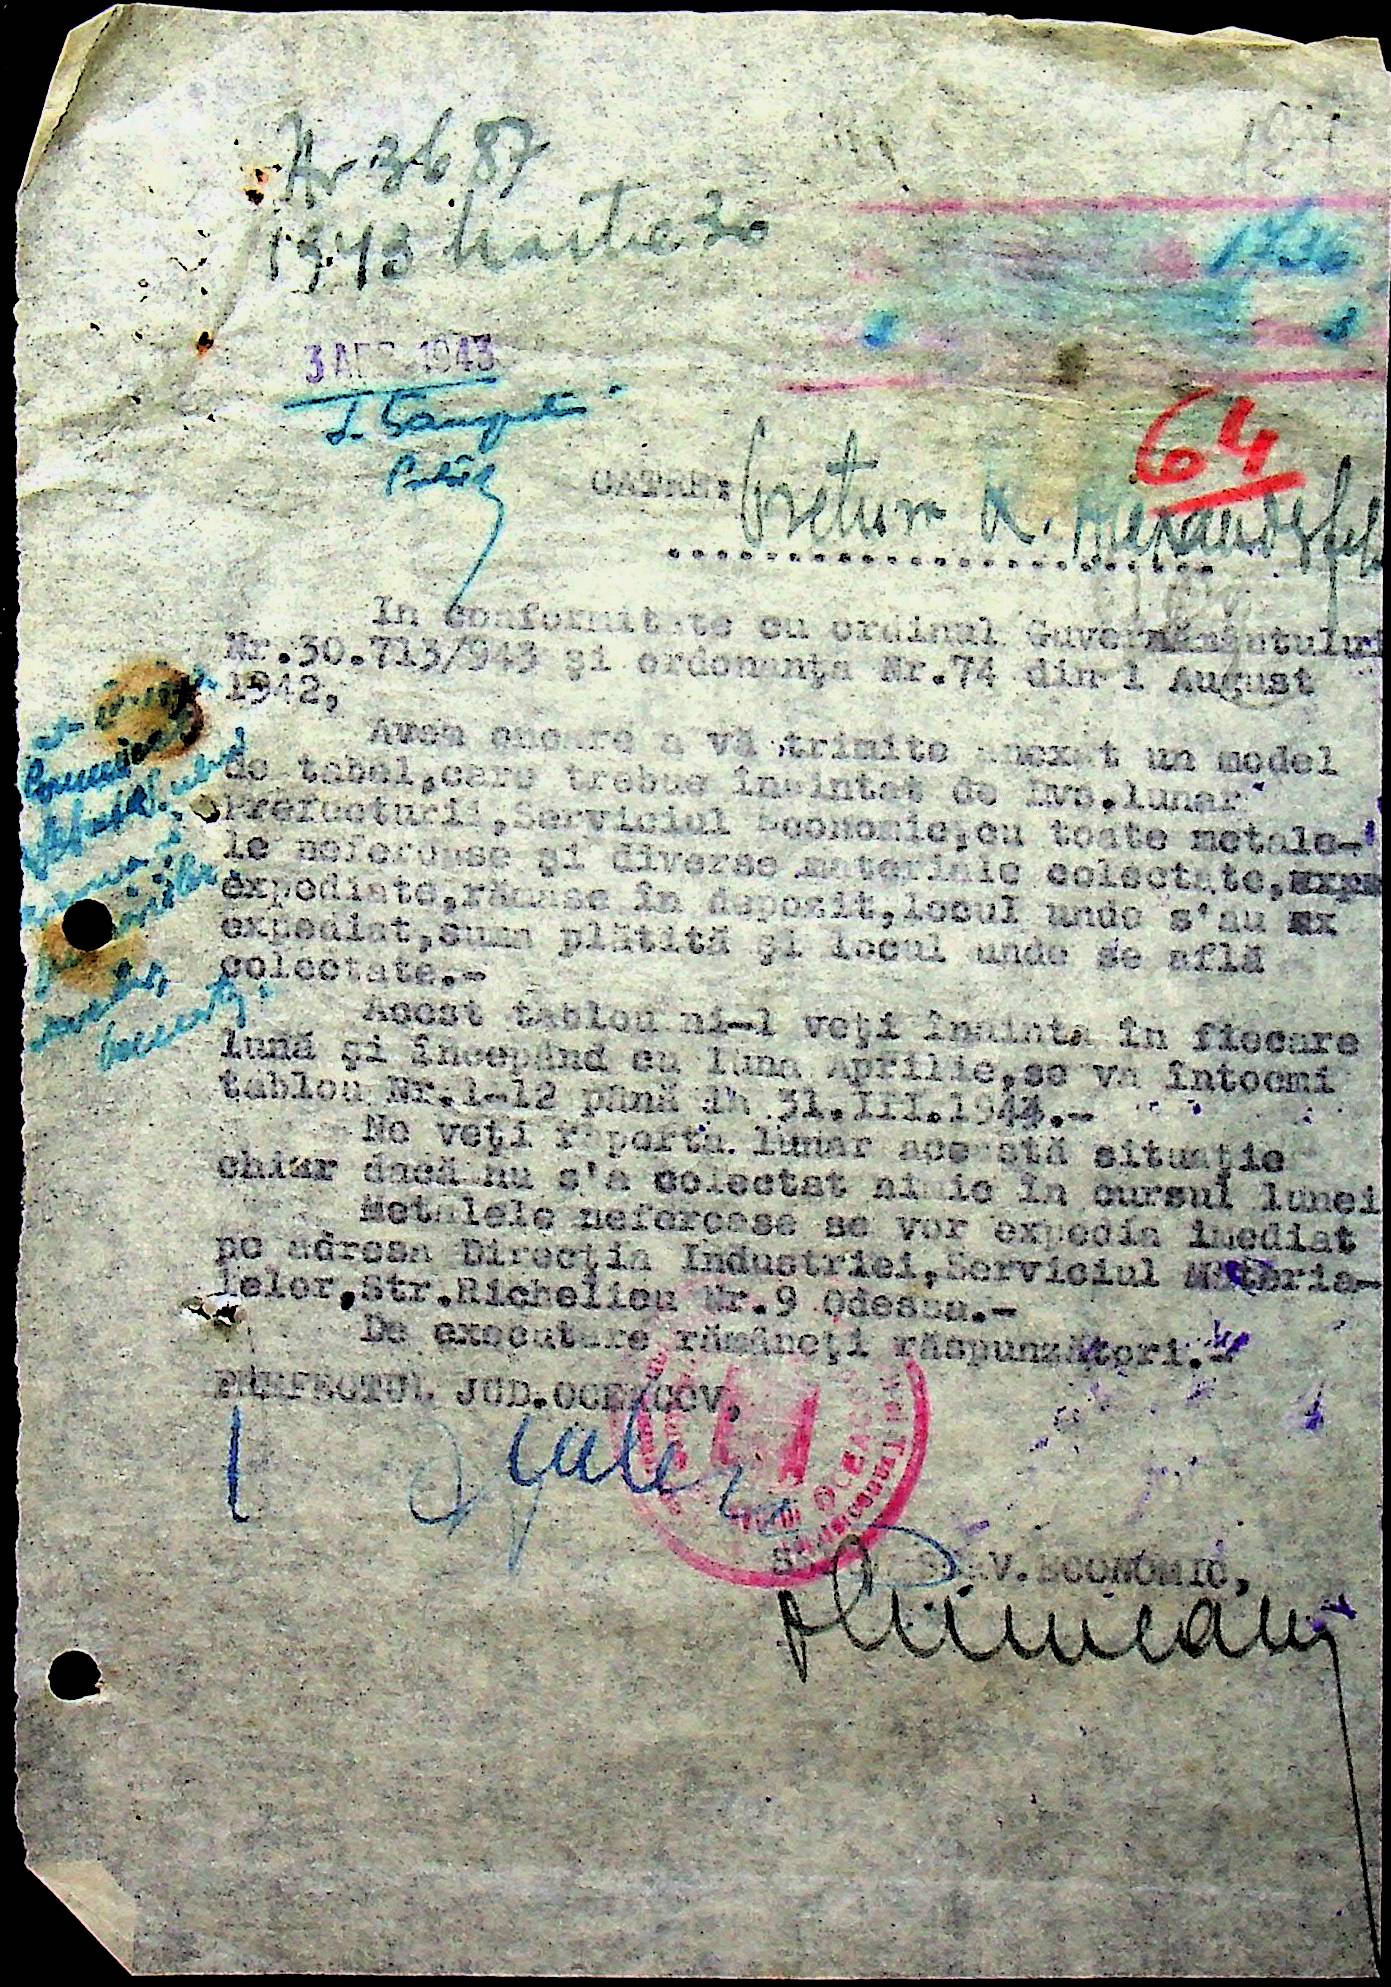 Nr 3687
1943 Martie 30
1736
3 APR 1943
64
CATRE:
Pretura R.
In conformitate cu ordinul Guvernământului
Nr.30.713/943 şi ordonanţa Nr.74 din 1 August
1942,
Avem onoare a vă trimite anexat un model
de tabel,care trebue înaintat de Dvs.lunar
Prefecturii,Serviciul Economic,cu toate metale-
le neferoase şi diverse materiale colectate,
expediate,rămase în depozit,locul unde s'au xx
expediat,suma plătită şi locul unde se află
colectate.-
Acest tablou ni-l veţi înainta în fiecare
lună şi începând cu luna Aprilie,se va întocmi
tablou Nr.1-12 până la 31.III.1944.-
Ne veţi raporta lunar această situaţie
chiar dacă nu s'a colectat nimic în cursul lunei
Metalele neferoase se vor expedia imediat
pe adresa Direcţia Industriei,Serviciul Materia-
lelor,Str.Richelieu Nr.9 Odessa.-
De executare rămâneţi răspunzători.-
PREFECTUL JUD.OCEACOV,
SERV.ECONOMIC,